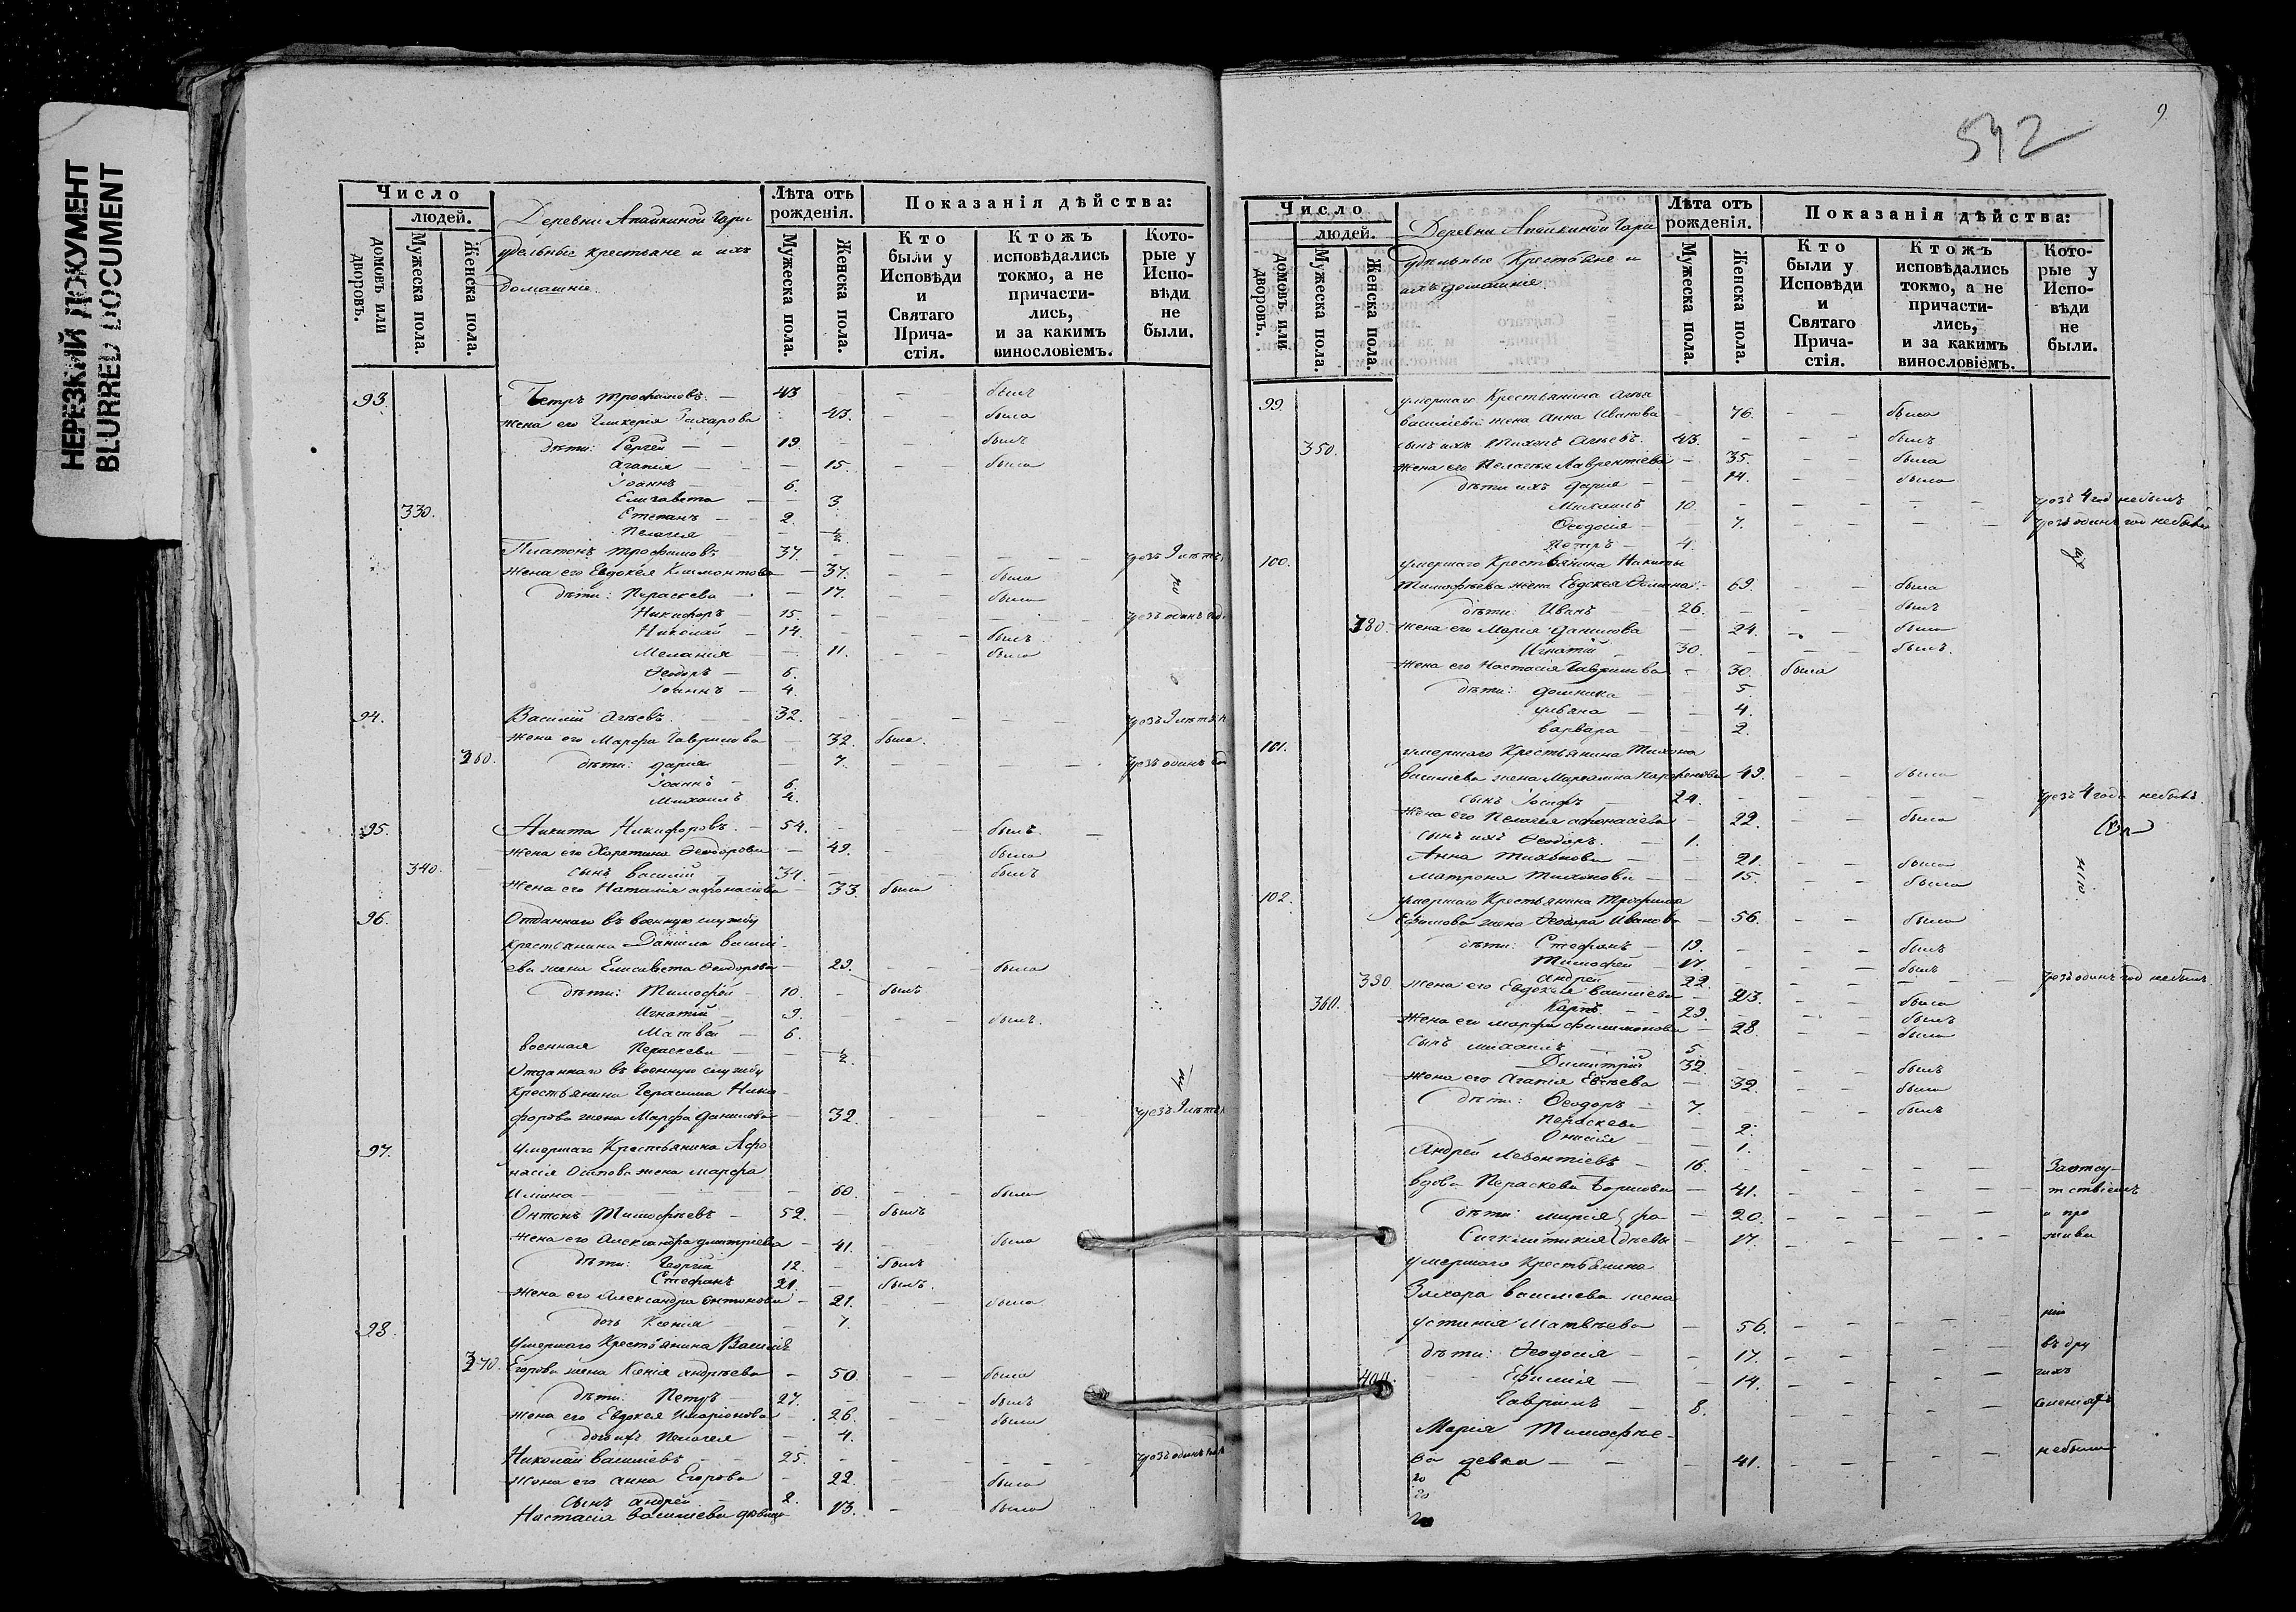 НЕРЕЗКИЙ ДОКУМЕНТ
BLURRED DOCUMENT
Число
людей.
домовъ или дворовъ.
Мужеска пола.
Женска пола.
Деревни Апайкиной Гари
удельные крестьяне и ихъ
домашніе.
Лѣта отъ рожденія.
Мужеска пола.
Женска пола.
Показанія дѣйства:
Кто были у Исповѣди и Святаго Прича-стія.
Ктожъ исповѣдались токмо, а не причасти-лись, и за какимъ винословіемъ.
Кото-рые у Испо-вѣди не были.
93. Петръ Трофимовъ 43 былъ
жена его Гликерія Захарова 43. была
дѣти: Сергей 19. былъ
Агапія 15. была
Іоаннъ 6.
Елисавета 3
330. Степанъ 2.
Пелагея ½
Платонъ Трофимовъ 37. чрезъ 9 лѣтъ
жена его Евдокея Климонтова 37. была
дѣти: Параскева 17. была
Никифоръ 15. чрезъ одинъ годъ
Николай 14. былъ
Меланія 11. была
Ѳеодоръ 6.
Іоаннъ 4.
94. Василій Агѣевъ 32. чрезъ 9 лѣтъ
жена его Марфа Гаврилова 32. была.
360. дѣти: Дарія 7. чрезъ одинъ
Іоаннъ 6.
Михаилъ 4.
95. Никита Никифоровъ. 54. былъ
жена его Харитина Ѳеодорова 49. была
340. сынъ Василій 34. былъ
жена его Наталія Афонасіева 33 была
96. Отданнаго въ военную службу
крестьянина Даніила Василі-
ева жена Елисавета Ѳеодорова 29. была
дѣти: Тимофей 10. былъ
Игнатій 9. былъ.
Матвей 6.
военная Параскева ½
Отданнаго въ военную службу
крестьянина Герасима Ники
форова жена Марфа Данилова 32. чрезъ 9 лѣтъ
97. Умершаго Крестьянина Афо
насія Осипова жена Марфа
Ильина 60. была
Онтонъ Тимофѣевъ 52. былъ
жена его Александра Дмитріева 41. была
дѣти: Георгій 12. былъ
Стефанъ 21. былъ.
жена его Александра Онтонова 21. была
дочь Ксенія 7.
98. Умершаго Крестьянина Василія
370. Егорова жена Ксенія Андрѣева 50. была
дѣти: Петръ 27. былъ
жена его Евдокея Иларіонова 26. была
дочь ихъ Пелагея 4.
Николай Василіевъ 25. чрезъ одинъ годъ
жена его Анна Егорова 22. была
сынъ Андрей 2.
Настасія Василіева девица 13. была
542
9
Число
людей.
домовъ или дворовъ.
Мужеска пола.
Женска пола.
Деревни Апайкиной Гари
удѣльные Крестьяне и
ихъ домашніе.
Лѣта отъ рожденія.
Мужеска пола.
Женска пола.
Показанія дѣйства:
Кто были у Исповѣди и Святаго Прича-стія.
Ктожъ исповѣдались токмо, а не причасти-лись, и за какимъ винословіемъ.
Кото-рые у Испо-вѣди не были.
99. умершаго Крестьянина Агѣя
Василіева жена Анна Иванова 76. была
350. сынъ ихъ Тихонъ Агѣевъ. 43. былъ
жена его Пелагея Лаврентіева 35. была
дѣти ихъ Дарія 14. была
Михаилъ 10. чрезъ 4 год небылъ
Ѳеодосія 7. чрезъ одинъ год небыла
Петръ 4.
100. умершаго Крестьянина Никиты
Тимофѣева жена Евдокея Фомина 69. была
дѣти: Иванъ 26. былъ
380. жена его Марія Данилова 24. была
Игнатій 30. былъ.
жена его Настасія Гаврилова 30. была
дѣти: Домника 5.
Уліана 4.
Варвара 2.
101. умершаго Крестьянина Тихона
Василіева жена Маріамна Парфенова 49. была
сынъ Іосифъ 24. чрезъ 4 года небылъ.
жена его Пелагея Афонасіева 22. была
сынъ ихъ Ѳеодоръ. 1.
Анна Тихонова 21. была
Матрона Тихонова 15. была
102. умершаго Крестьянина Трофима
Ефимова жена Ѳеодора Иванова 56. была
дѣти: Стефанъ 19. былъ
Тимофей 17. былъ
Андрей 22. чрезъ одинъ год небылъ
390. жена его Евдокея Василіева 23. была
360. Карпъ 29. былъ
жена его Марфа Филимонова 28 была
сынъ Михаилъ 5
Димитрій 32. былъ
жена его Агапія Евсѣева 32. была
дѣти: Ѳеодоръ 7. былъ
Параскева 2.
Онисія 1.
Андрей Леонтіевъ 16. За отсу-
вдова Параскева Борисова 41. тствіемъ
дѣти: Марія 20. и про
Сигклитикія 17. жива
умершаго Крестьянина
Захара Василіева жена
Устинія Матвѣева 56. ніи
дѣти: Ѳеодосія 17. въ дру
400. Ефимія 14. гихъ
Гавріилъ 8. селеніяхъ
Марія Тимофѣе-
ва девка 41. небыли